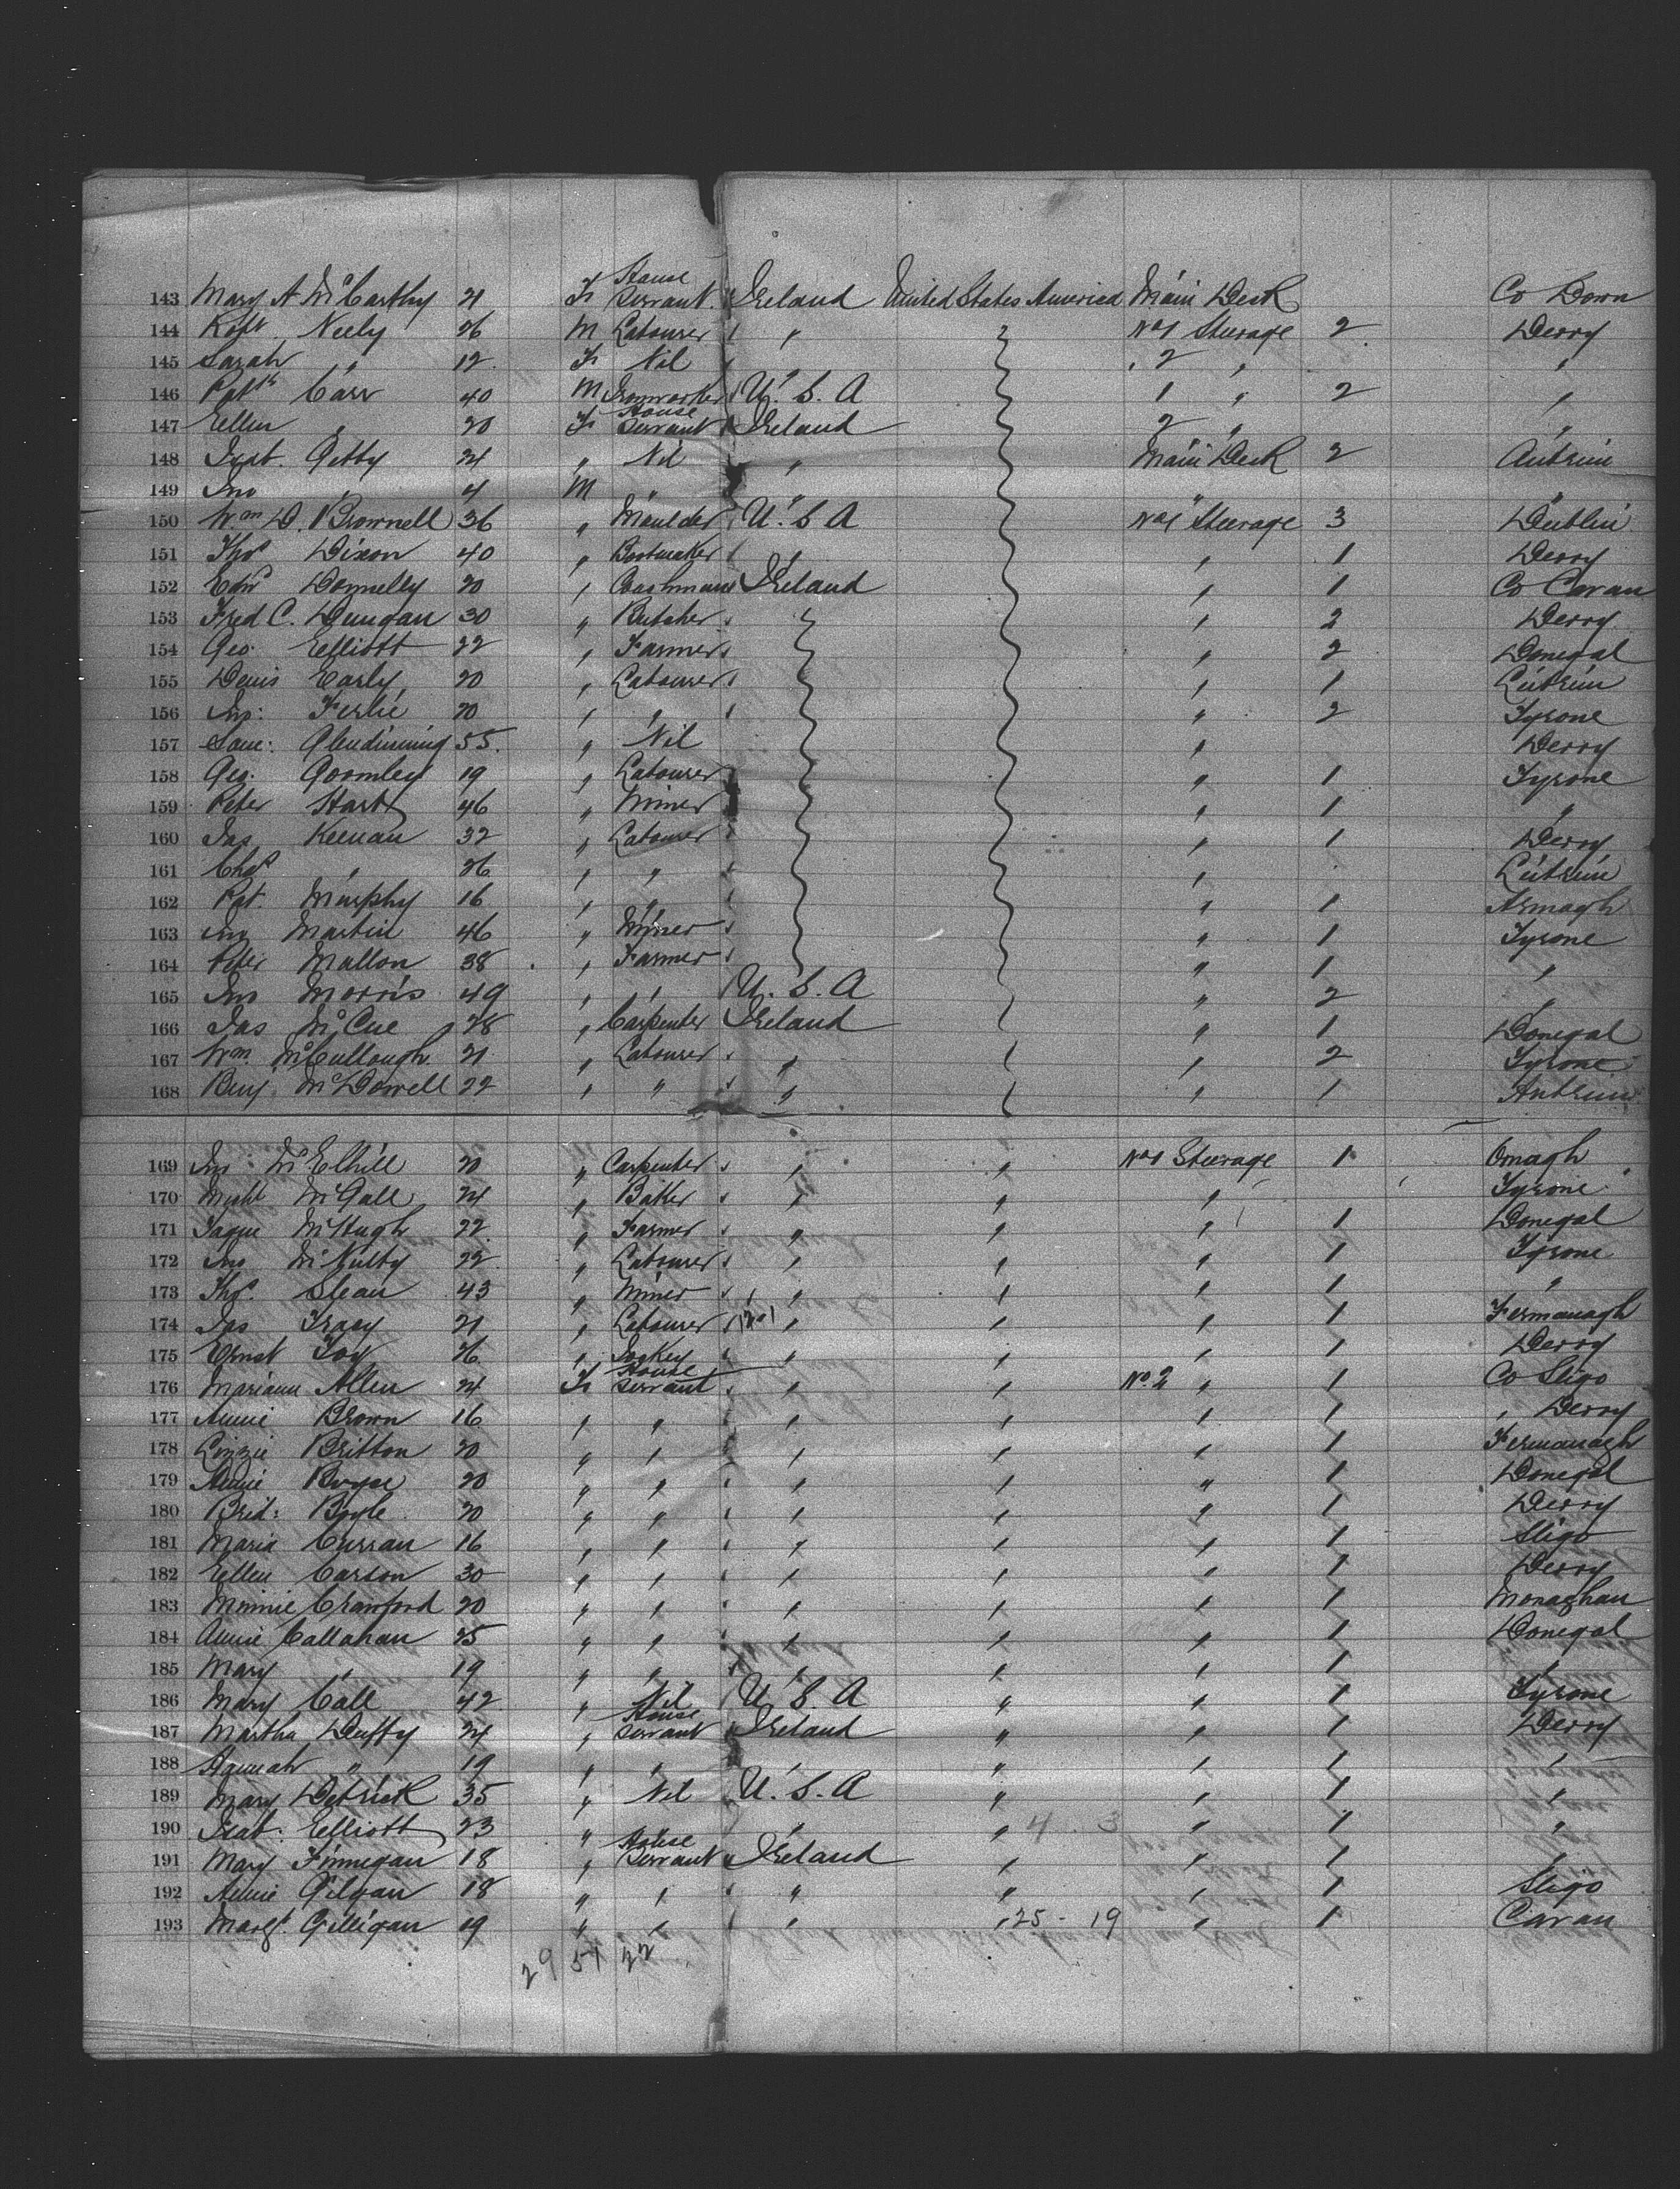 143 Mary A McCarthy 21 F House Servant Ireland United States America Main Deck Co Down
144 Robt Neely 26 M Labourer " No 1 Steerage 2 Derry
145 Sarah " 12 F Nil " 2 " "
146 Patk Carr 40 M Ironworker U.S.A 1 " 2 "
147 Ellen " 20 F House Servant Ireland 2 " "
148 Isab. Getty 24 " Nil " Main Deck 2 Antrim
149 Jno " 4 M " "
150 Wm D. Brownell 36 " Moulder U.S.A No 1 Steerage 3 Dublin
151 Thos Dixon 40 " Bootmaker " " 1 Derry
152 Edwd Donnelly 20 " Coachman Ireland " 1 Co Cavan
153 Fred C. Dungan 30 " Butcher " 2 Derry
154 Geo. Elliott 22 " Farmer " 2 Donegal
155 Denis Early 20 " Labourer " 1 Leitrim
156 Jno: Ferlie 20 " " " 2 Tyrone
157 Sam: Glendinning 55 " Nil " Derry
158 Geo. Goomley 19 " Labourer " 1 Tyrone
159 Peter Hart 46 " Miner " 1 "
160 Jas Keenan 32 " Labourer " 1 Derry
161 Chas " 26 " " " Leitrim
162 Pat. Murphy 16 " " " 1 Armagh
163 Jno Martin 46 " Miner " 1 Tyrone
164 Peter Mallon 38 " Farmer " 1 "
165 Jno Morris 49 " " U.S.A " 2 "
166 Jas McCue 28 " Carpenter Ireland " 1 Donegal
167 Wm. McCullough 21 " Labourer " " 2 Tyrone
168 Benj McDowell 22 " " " " 1 Antrim
169 Jno McElhill 20 " Carpenter " " No 1 Steerage 1 Omagh
170 Michl McGall 24 " Baker " " " Tyrone
171 Tague McHugh 22 " Farmer " " " 1 Donegal
172 Jno McNulty 22 " Labourer " " " 1 Tyrone
173 Thos. Slean 43 " Miner " " " 1 "
174 Jas Tracy 21 " Labourer " " " 1 Fermanagh
175 Ernst Foy 26 " Jockey " " " 1 Derry
176 Mariann Allen 24 F House Servant " " No. 2 " 1 Co Sligo
177 Annie Brown 16 " " " " " 1 " Derry
178 Lizzie Britton 20 " " " " " 1 Fermanagh
179 Annie Boyse 20 " " " " " 1 Donegal
180 Brid: Boyle 20 " " " " " 1 Derry
181 Maria Curran 16 " " " " " 1 Sligo
182 Ellen Carson 30 " " " " " 1 Derry
183 Minnie Crawford 20 " " " " " 1 Monaghan
184 Annie Callahan 25 " " " " " 1 Donegal
185 Mary " 19 " " " " " 1 "
186 Mary Call 42 " Nil U.S.A " " 1 Tyrone
187 Martha Duffy 24 " House Servant Ireland " " 1 Derry
188 Hannah " 19 " " " " " 1 "
189 Mary Detrick 35 " Nil U.S.A " " 1 "
190 Isab: Elliott 23 " " " " 4 3 " 1 "
191 Mary Finnegan 18 " House Servant Ireland " " 1 "
192 Annie Gilgan 18 " " " " " 1 Sligo
193 Margt. Gilligan 19 " " " " 25 - 19 " 1 Cavan
29 51 22